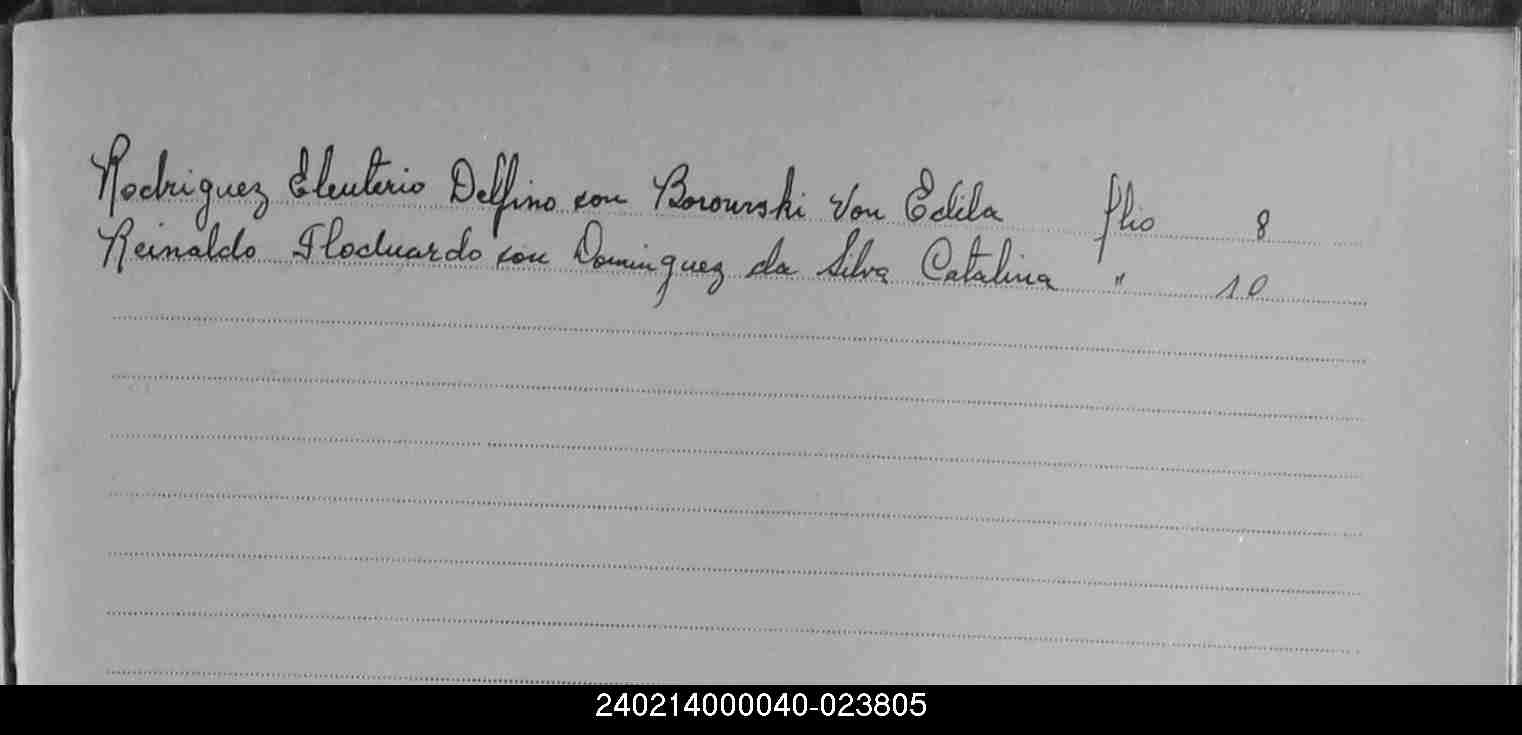 Rodriguez Eleuterio Delfino con Borowski Von Edila flio 8
Reinaldo Floduardo con Dominguez da Silva Catalina " 10
240214000040-023805